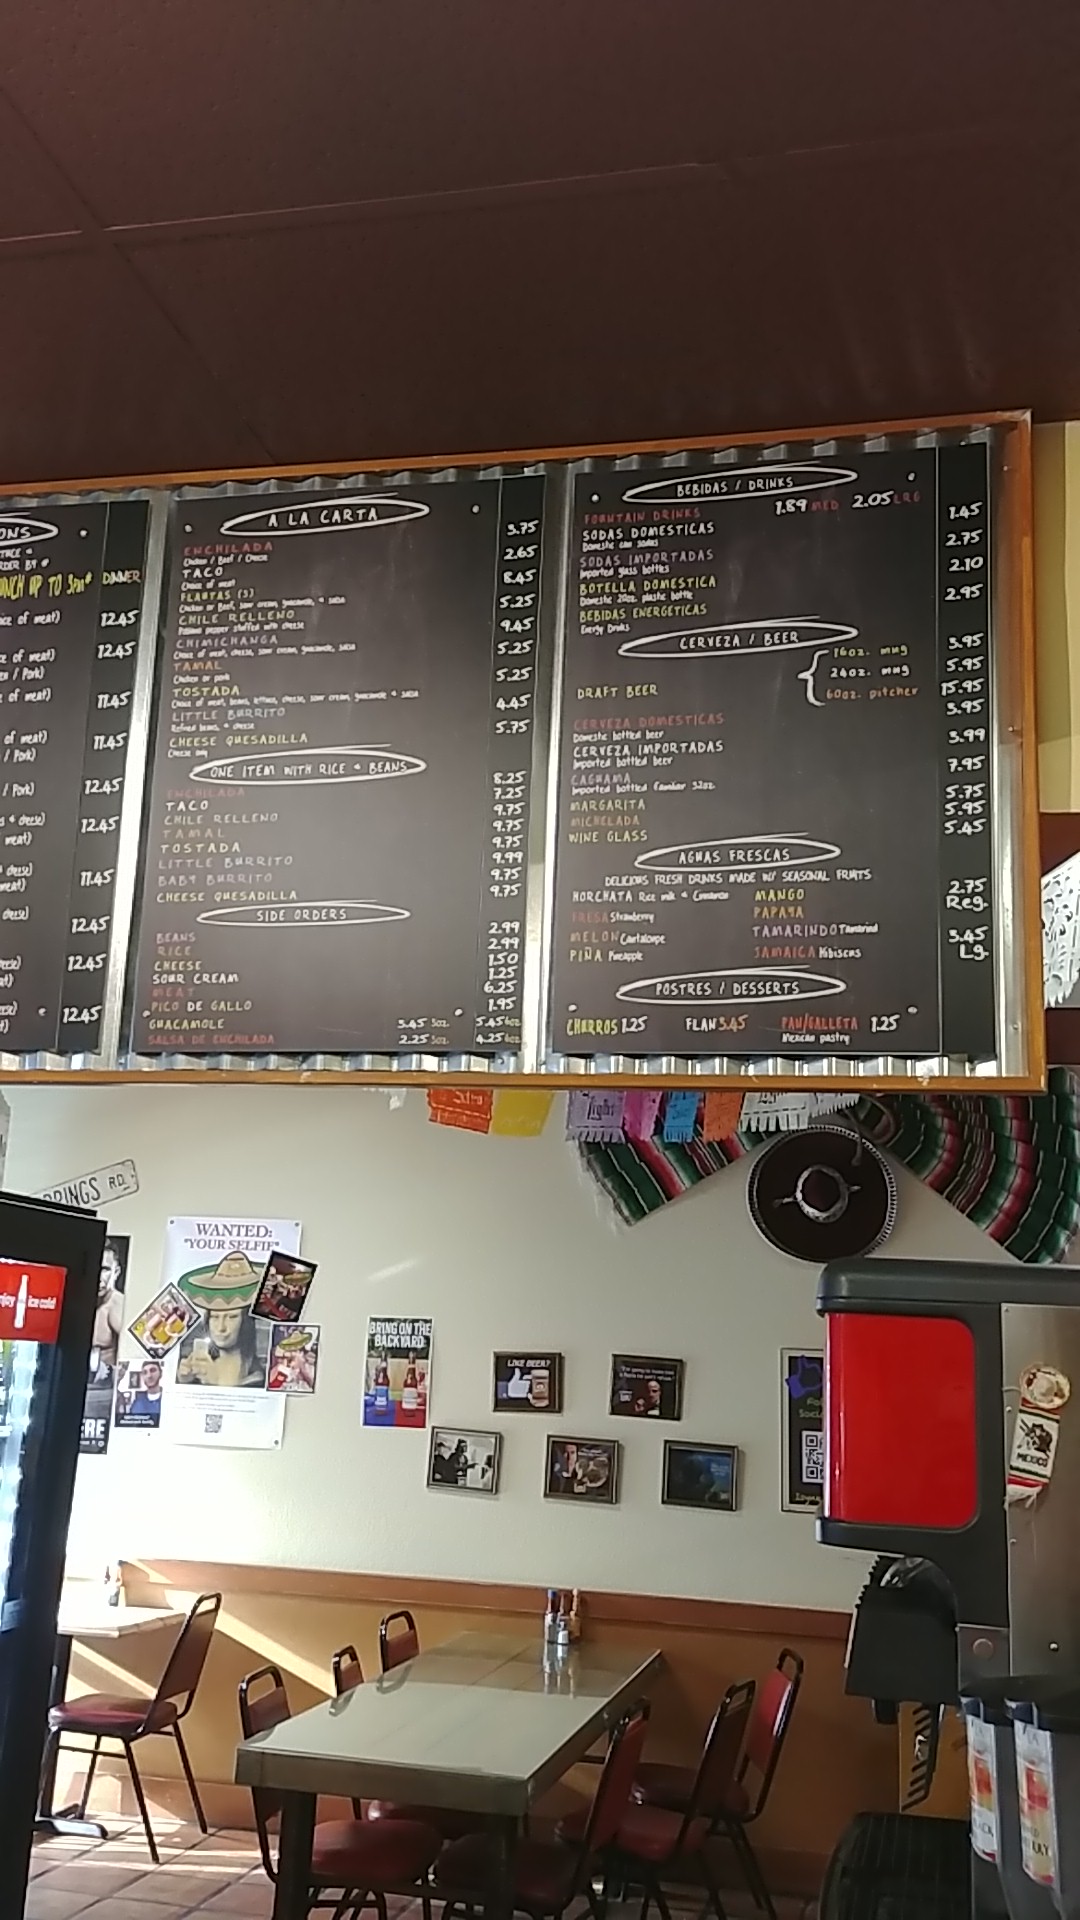 ONS
ORDER BY #
LUNCH UP TO 3pm* DINNER
ice of meat) 12.45
ce of meat) 12.45
en / Pork)
of meat) 11.45
of meat) 11.45
/ Pork)
/ Pork) 12.45
s & cheese) 12.45
meat)
cheese) 11.45
meat)
cheese) 12.45
cheese) 12.45
cheese) 12.45
A LA CARTA
ENCHILADA 3.75
Chicken / Beef / Cheese
TACO 2.65
Choice of meat
FLAUTAS (3) 8.45
Chicken or Beef, sour cream, guacamole, & salsa
CHILE RELLENO 5.25
Poblano pepper stuffed with cheese
CHIMICHANGA 9.45
Choice of meat, cheese, sour cream, guacamole, salsa
TAMAL 5.25
Chicken or pork
TOSTADA 5.25
Choice of meat, beans, lettuce, cheese, sour cream, guacamole & salsa
LITTLE BURRITO 4.45
Refried beans, & cheese
CHEESE QUESADILLA 5.75
Cheese only
ONE ITEM WITH RICE & BEANS
ENCHILADA 8.25
TACO 7.25
CHILE RELLENO 9.75
TAMAL 9.75
TOSTADA 9.75
LITTLE BURRITO 9.99
BABY BURRITO 9.75
CHEESE QUESADILLA 9.75
SIDE ORDERS
BEANS 2.99
RICE 2.99
CHEESE 1.50
SOUR CREAM 1.25
MEAT 6.25
PICO DE GALLO 1.95
GUACAMOLE 3.45 3oz. 5.45 6oz.
SALSA DE ENCHILADA 2.25 3oz. 4.25 6oz.
BEBIDAS / DRINKS
FOUNTAIN DRINKS 1.89 MED 2.05 LRG
SODAS DOMESTICAS 1.45
Domestic can sodas
SODAS IMPORTADAS 2.75
Imported glass bottles
BOTELLA DOMESTICA 2.10
Domestic 20oz. plastic bottle
BEBIDAS ENERGETICAS 2.95
Energy Drinks
CERVEZA / BEER
16oz. mug 3.95
24oz. mug 5.95
DRAFT BEER 60oz. pitcher 15.95
CERVEZA DOMESTICAS 3.95
Domestic bottled beer
CERVEZA IMPORTADAS 3.99
Imported bottled beer
CAGUAMA 7.95
Imported bottled familiar 32oz.
MARGARITA 5.75
MICHELADA 5.95
WINE GLASS 5.45
AGUAS FRESCAS
DELICIOUS FRESH DRINKS MADE W/ SEASONAL FRUITS
HORCHATA Rice milk & Cinnamon MANGO 2.75
Reg.
FRESA Strawberry PAPAYA
MELON Cantaloupe TAMARINDO Tamarind 3.45
Lg.
PIÑA Pineapple JAMAICA Hibiscus
POSTRES / DESSERTS
CHURROS 1.25 FLAN 3.45 PAN/GALLETA 1.25
Mexican pastry
RINGS RD.
WANTED:
"YOUR SELFIE"
njoy ice cold
ERE
BRING ON THE
BACKYARD
LIKE BEER?
MEXICO